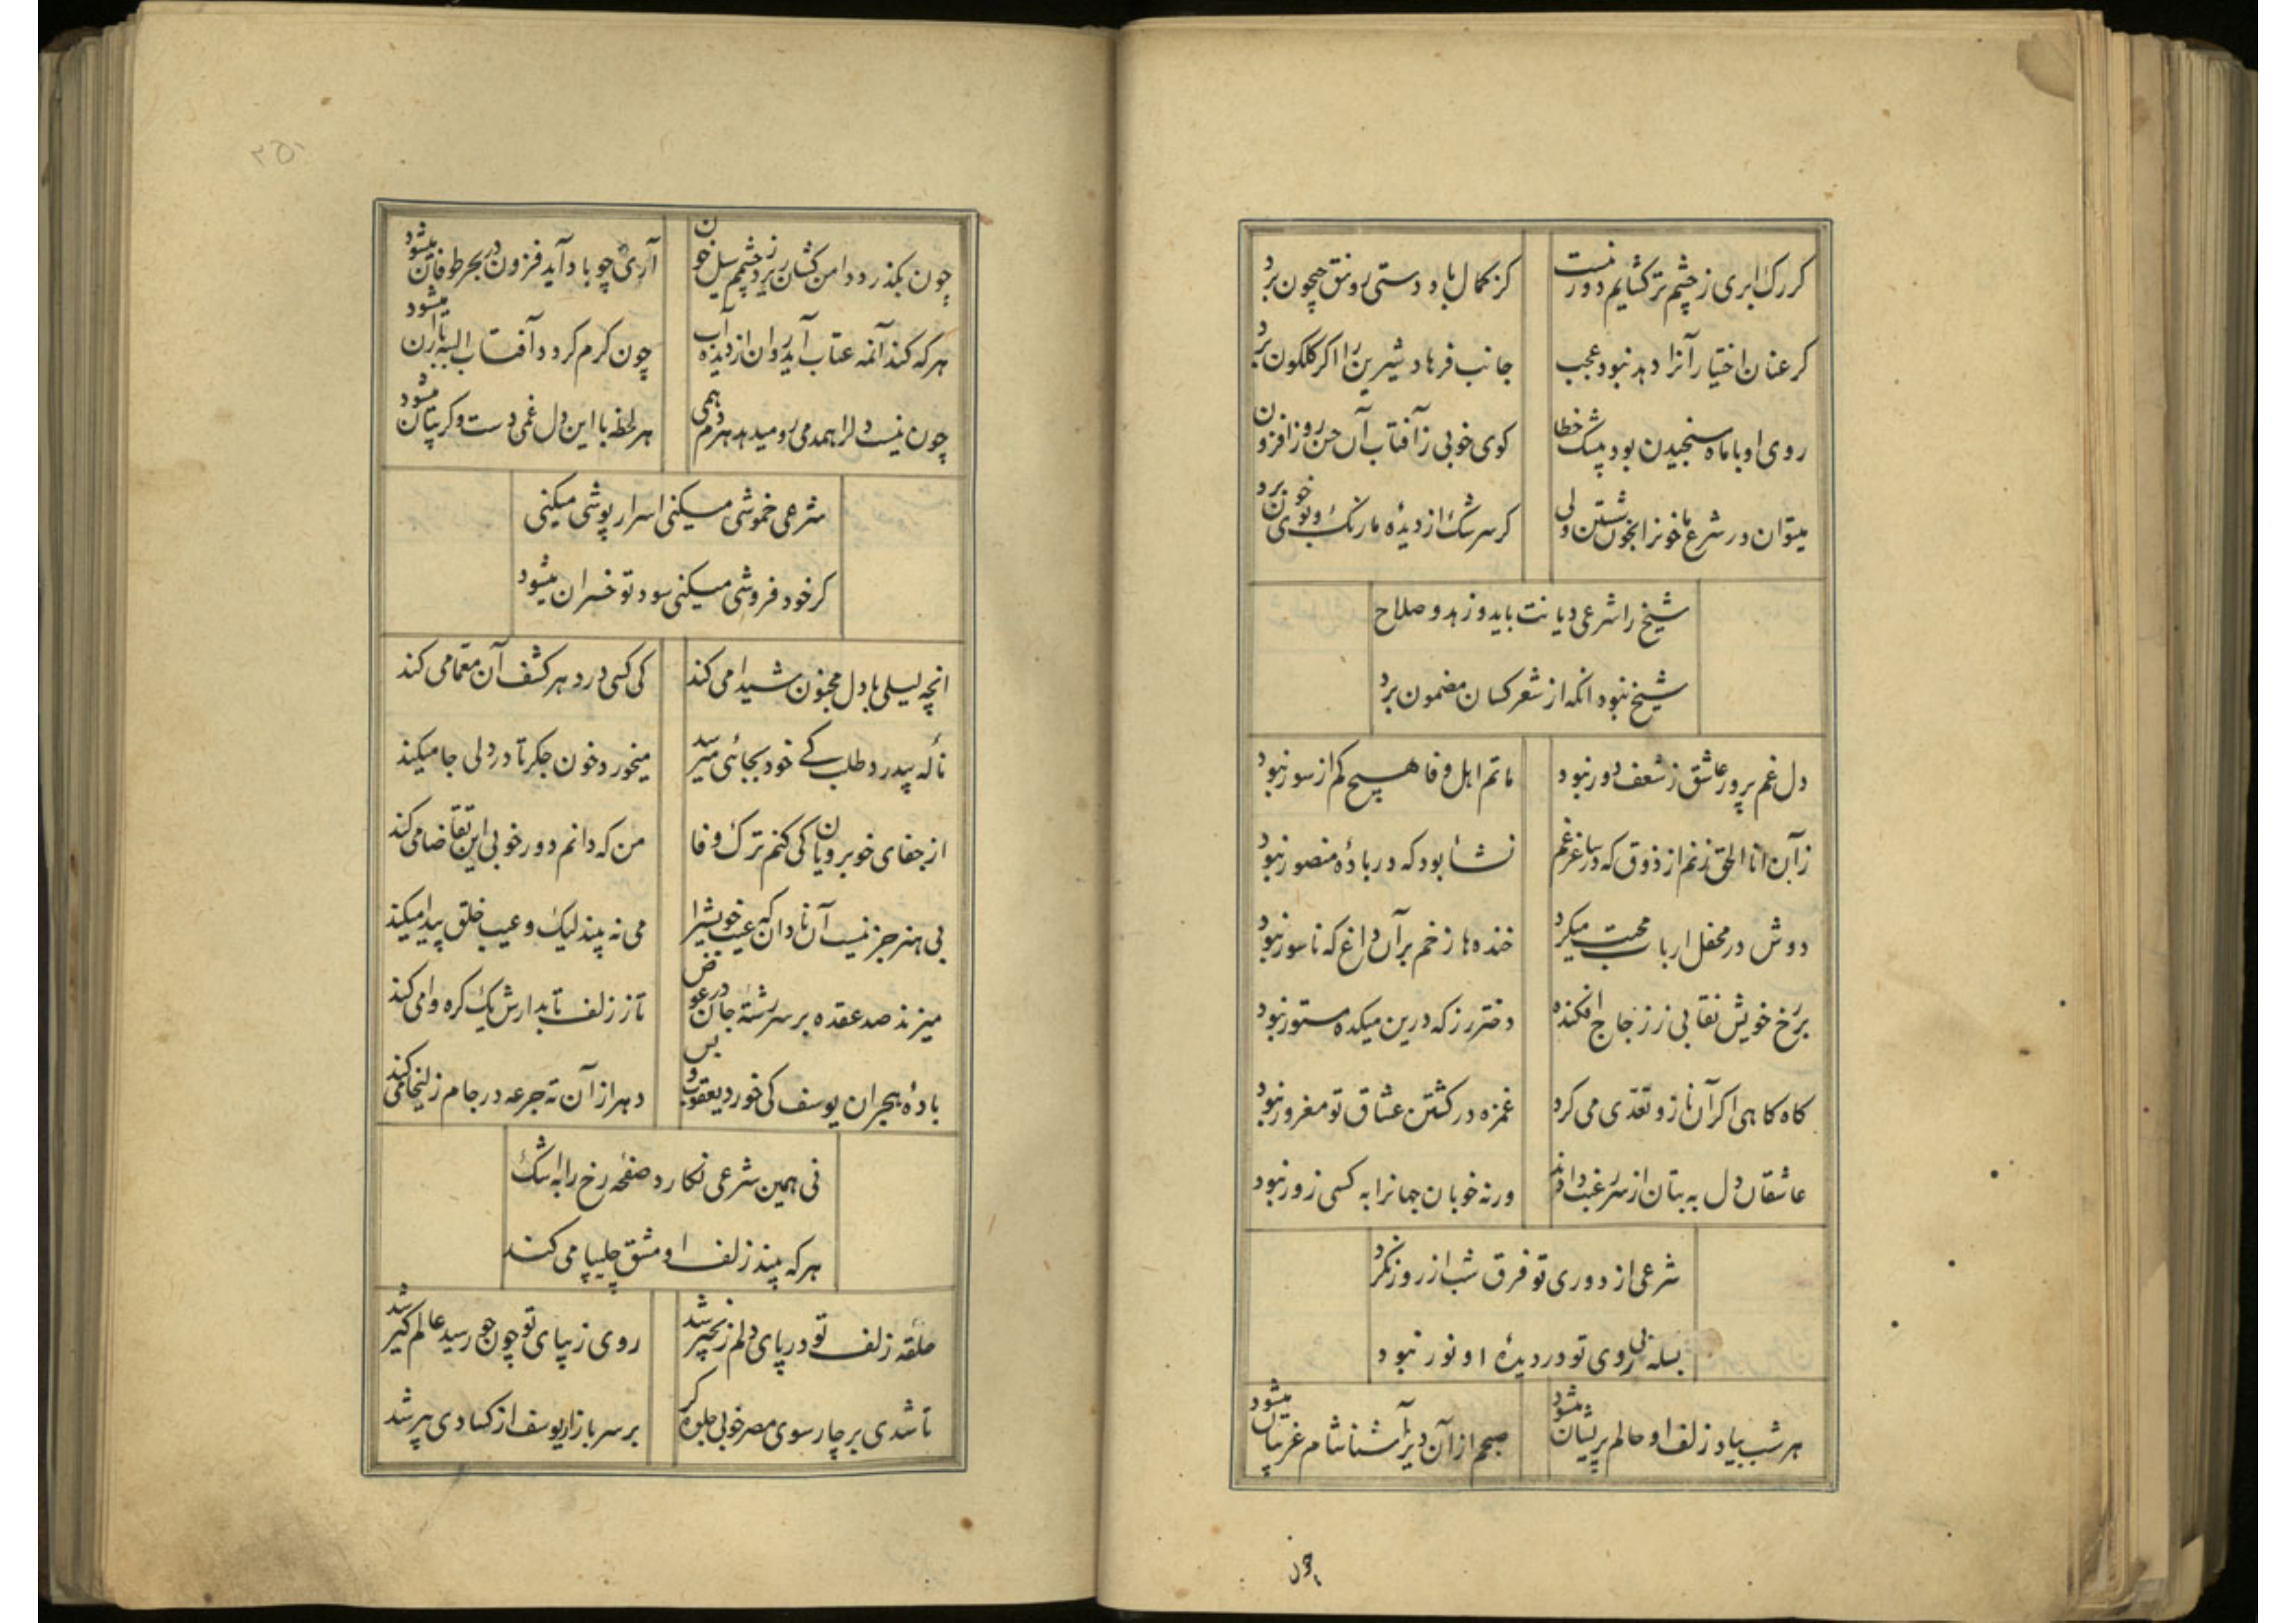 کر رک ابری ز چشم تر کشایم دور نیست	کز کمال باد دستی رونق جیحون برد
کر عنان اختیار آنرا دهد نبود عجب	جانب فرهاد شیرین را اکر کلکون برد
روی او با ماه سنجیدن بود پیشک خطا	کوی خوبی ز آفتاب آن حسن روز افزون برد
میتوان در شرع ما خونرا بخون شستن ولی	کر سرشک از دیدهٔ ما رنک و بوی خون برد
شیخ را شرعی دیانت باید و زهد و صلاح
شیخ نبود انکه از شعر کسان مضمون برد
دل غم پرور عاشق ز شعف دور نبود	ماتم اهل وفا هیچ کم از سور نبود
زآن انا الحق نزنم از ذوق که در ساغر غم	نشأ بود که در بادهٔ منصور نبود
دوش در محفل ارباب محبت میکرد	خنده‌ها زخم بر آن داغ که ناسور نبود
بر رخ خویش نقابی ز زجاج افکنده	دختر رز که درین میکده مستور نبود
کاه کاهی اکر آن ناز و تعدّی می کرد	غمزه در کشتن عشاق تو مغرور نبود
عاشقان دل به بتان از سر رغبت دادند	ورنه خوبان جهانرا به کسی زور نبود
شرعی از دوری تو فرق شب از روز نکرد
بسکه بی روی تو در دیدهٔ او نور نبود
هر شب بیاد زلف او حالم پریشان میشود	صبحم از آن دیر آشنا شام غریبان میشود
چون
چون بکذرد دامن کشان ریزد ز چشمم سیل خون	آری چو باد آید فزون در بحر طوفان میشود
هر که کند آنمه عتاب آید روان از دیده آب	چون کرم کردد آفتاب البته باران میشود
چون نیست دلرا همدمی رو میدهد هردم همی	هر لحظه با این دل غمی دست و کریبان میشود
شرعی خموشی میکنی اسرار پوشی میکنی
کر خود فروشی میکنی سود تو خسران میشود
انچه لیلی با دل مجنون شیدا می کند	کی کسی در دهر کشف آن معمّا می کند
نالهٔ بیدرد طلب کے خود بجائی میرسد	میخورد خون جکر تا در دلی جا میکند
از جفای خوبرویان کی کنم ترک وفا	من که دانم دور خوبی این تقاضا می کند
بی هنر جز نیست آن نادان که عیب خویشرا	می نه بیند لیک و عیب خلق پیدا میکند
میزند صد عقده بر سر رشتهٔ جان در عوض	تا ز زلف تابدارش یک کره وا می کند
بادهٔ هجران یوسف کی خورد یعقوب و بس	دهر از آن ته جرعه در جام زلیخا می کند
نی همین شرعی نکارد صفحه رخ را به اشک
هر که بیند زلف او مشق چلیپا می کند
حلقه زلف تو در پای دلم زنجیر شد	روی زیبای تو چون خور رسید عالم کیر شد
تا شدی بر چار سوی مصر خوبی جلوه کر	بر سر بازار یوسف از کسادی پیر شد